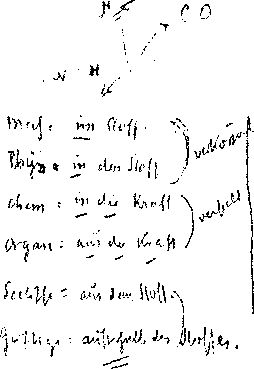 H C O
N H
mech. : im Stoff.
Phys. : in den Stoff
chem : in die Kraft
organ : aus der Kraft
Seelische = aus dem Stoff.
Geistige : außerhalb des Stoffes.